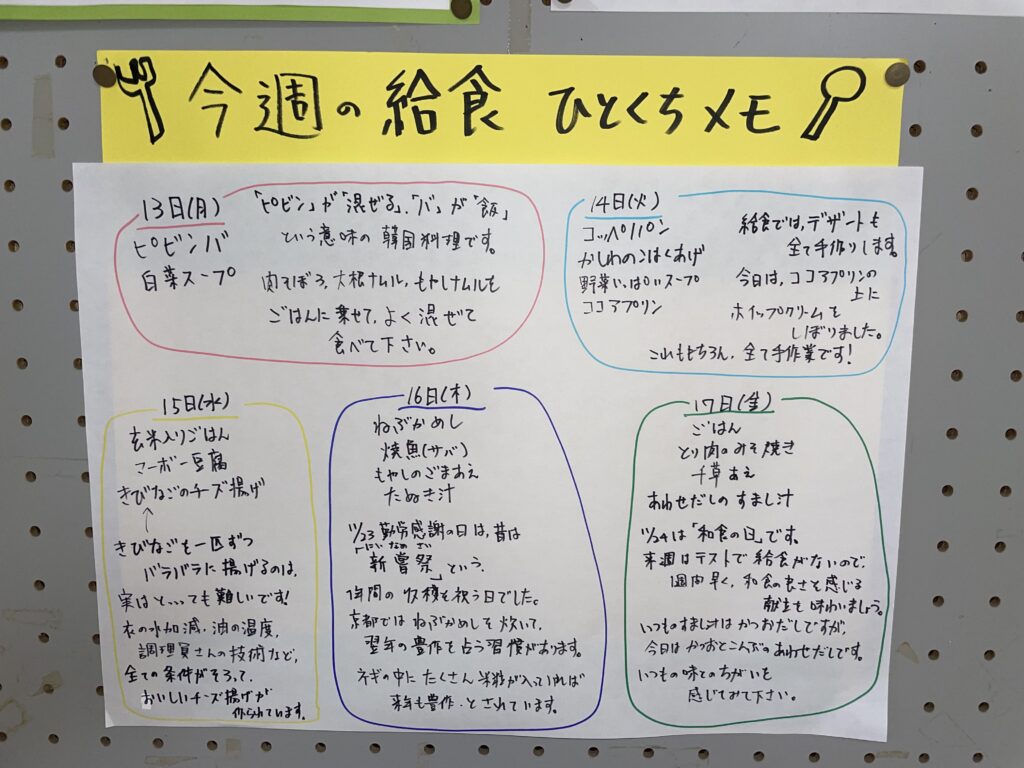 今週の給食 ひとくちメモ
13日(月)
ピビンバ
白菜スープ
「ピビン」が「混ぜる」、「バ」が「飯」
という意味の 韓国料理です。
肉そぼろ、大根ナムル、もやしナムルを
ごはんに乗せて、よく混ぜて
食べて下さい。
14日(火)
コッペパン
かしわのこはくあげ
野菜いっぱいスープ
ココアプリン
給食では、デザートも
全て手作りします。
今日は、ココアプリンの
上に
ホイップクリームを
しぼりました。
これももちろん、全て手作業です!
15日(水)
玄米入りごはん
マーボー豆腐
きびなごのチーズ揚げ
↑
きびなごを一匹ずつ
バラバラに揚げるのは、
実はと、、、ても難しいです!
衣の水加減、油の温度、
調理員さんの技術など、
全ての条件がそろって、
おいしいチーズ揚げが
作られています。
16日(木)
ねぶかめし
焼魚(サバ)
もやしのごまあえ
たぬき汁
11/23 勤労感謝の日は、昔は
「新嘗祭」という、
にいなめさい
1年間の収穫を祝う日でした。
京都ではねぶかめしを炊いて、
翌年の豊作を占う習慣があります。
ネギの中にたくさん米粒が入っていれば
来年も豊作、とされています。
17日(金)
ごはん
とり肉のみそ焼き
千草あえ
あわせだしのすまし汁
11/24は「和食の日」です。
来週はテストで給食がないので、
1週間早く、和食の良さを感じる
献立を味わいましょう。
いつものすまし汁はかつおだしですが、
今日はかつおとこんぶのあわせだしです。
いつもの味とのちがいを
感じてみて下さい。